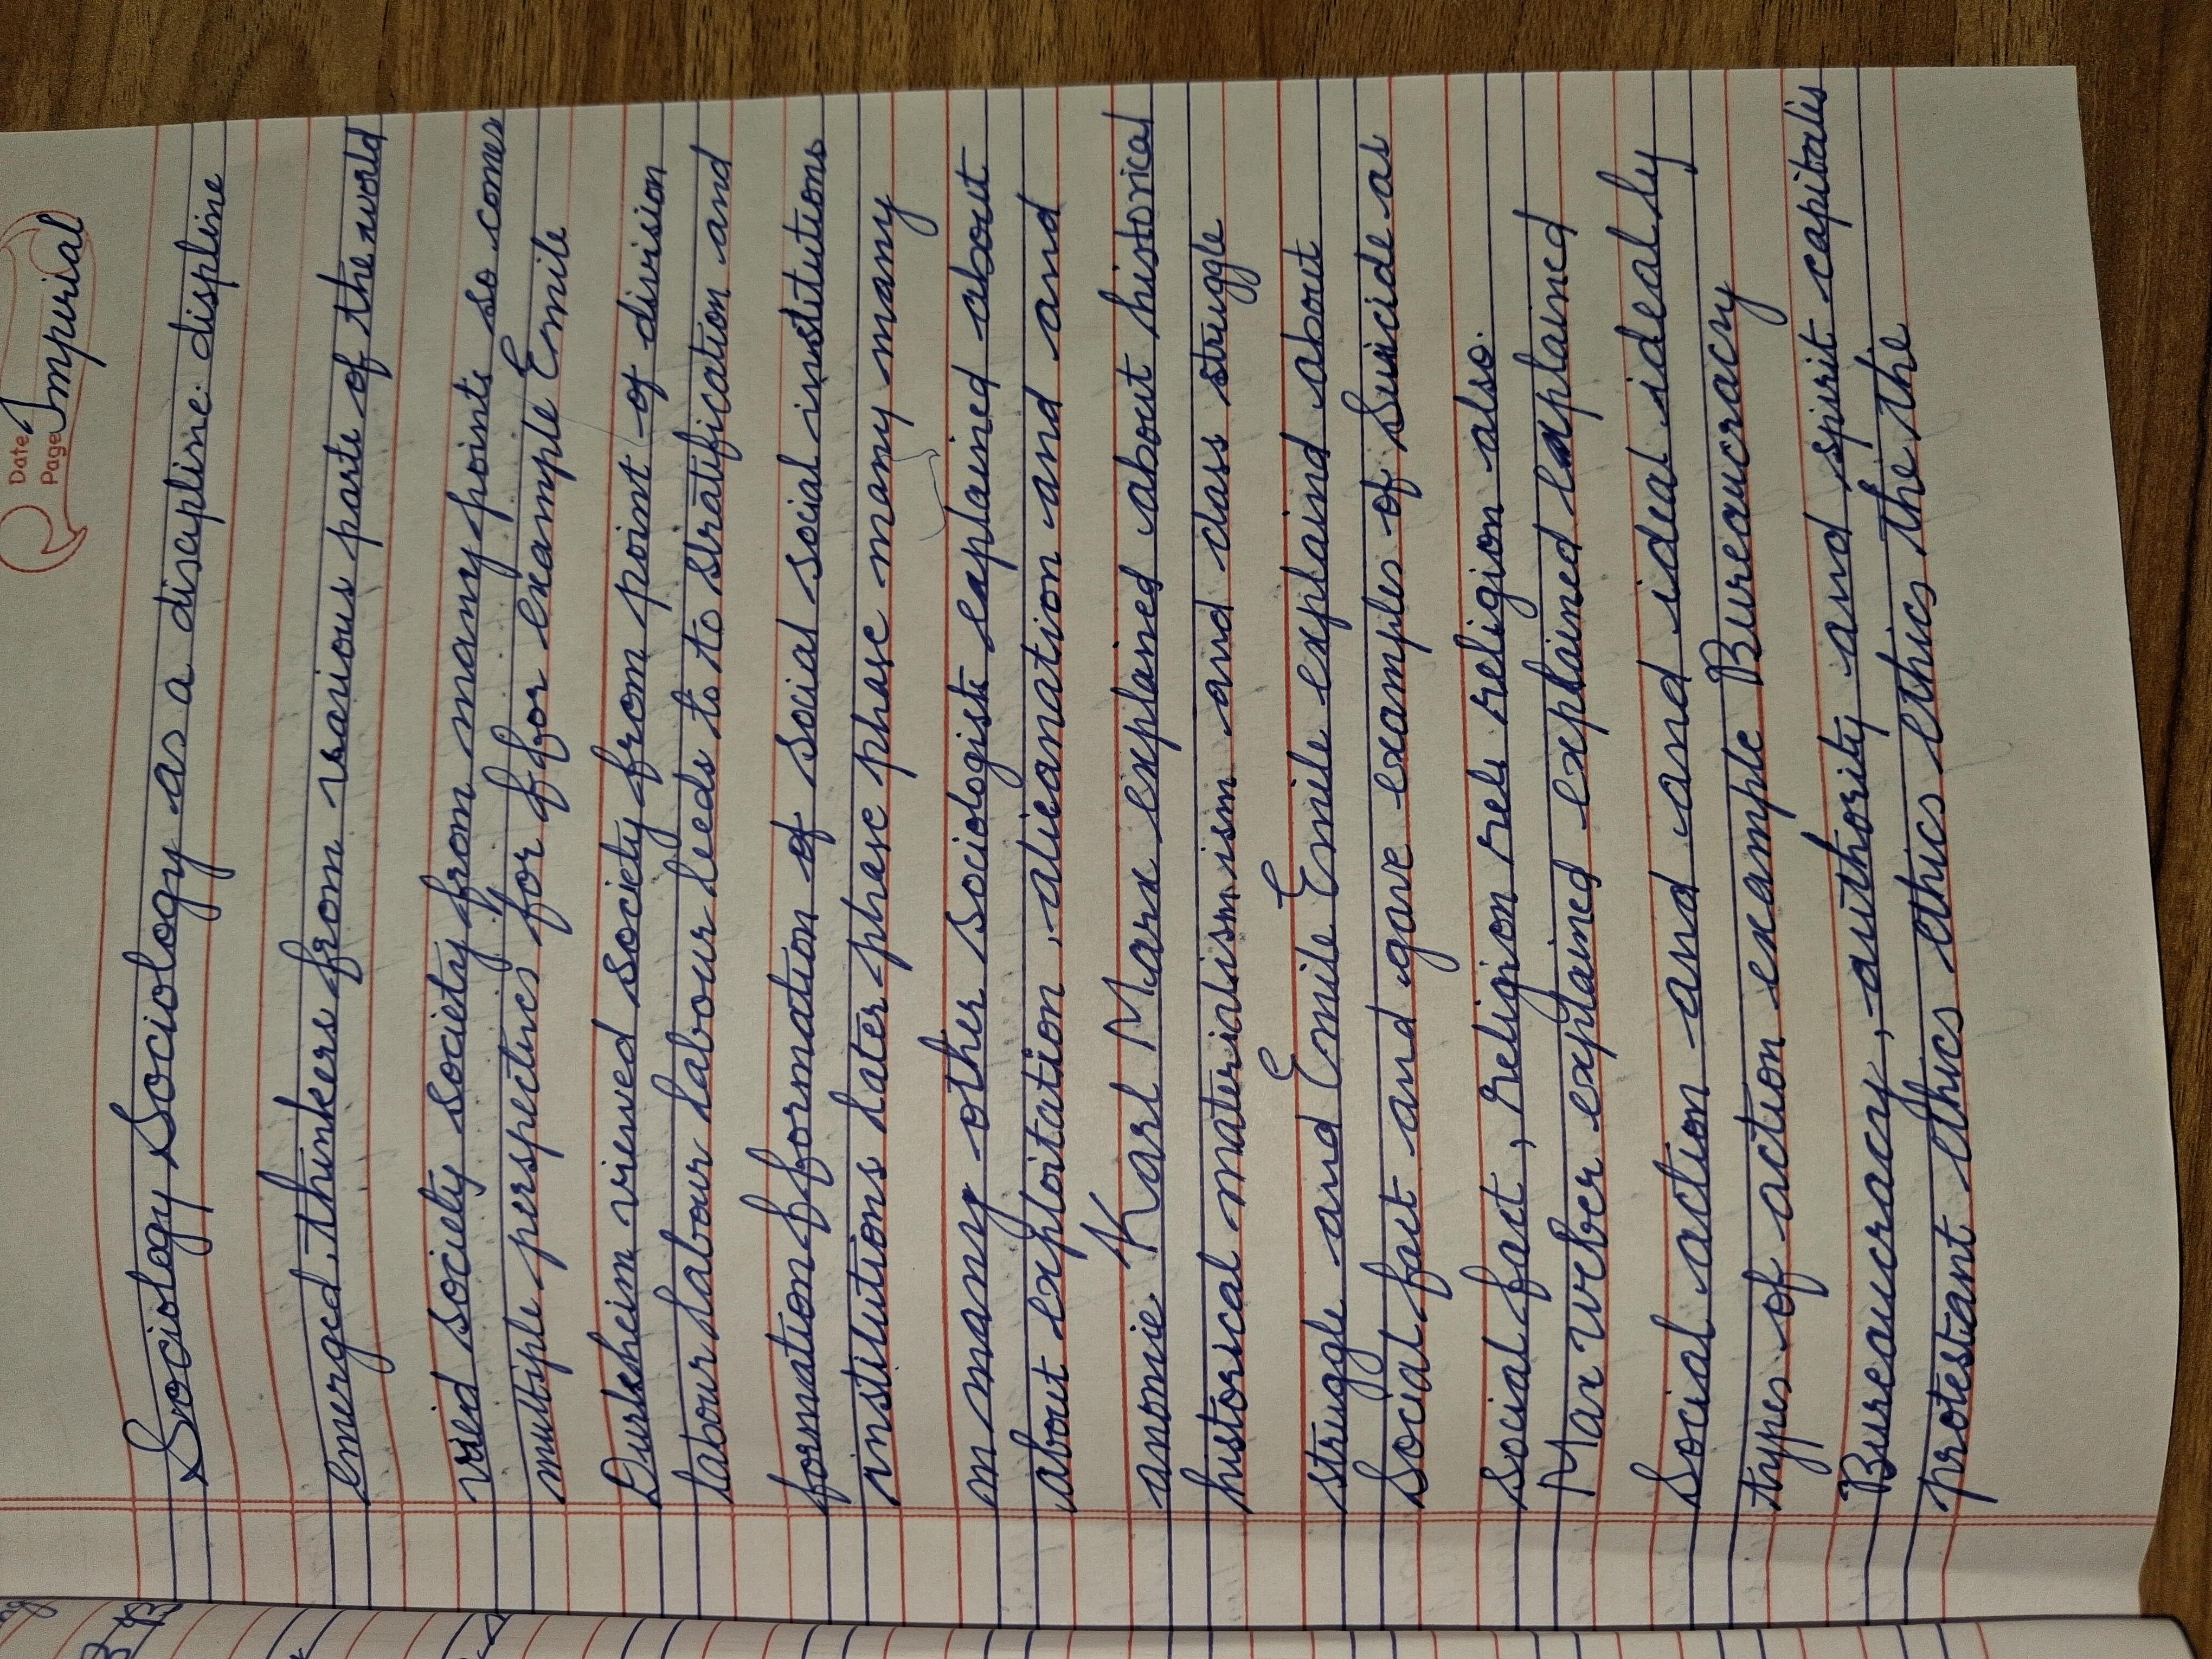 Date
Page Impurial
Sociology Sociology as a discipline displine
emerged, thinkers from various parts of the world
vied society society from many points so comes
multiple perspectives for for ffor example Emile
Durkheim viewed society from point of division
labour labour labour leeds to to stratification and
formation fformation of social social institutions
institutions later phase phase many many
m many other sociologists explained about
about exploitation, alieanation and and
anomie. Karl Marx explained about historical
historical materialism ism and class struggle
struggle and Emile Emile explaind about
social fact and gave examples of Suicide as
social fact, religion reli religion also.
Max weber explained explained explained
social action and and ideal idealy
types of action example Bureaucracy
Bureaucracy, authority and spirit capitalis
protestant ethics ethics ethics the the